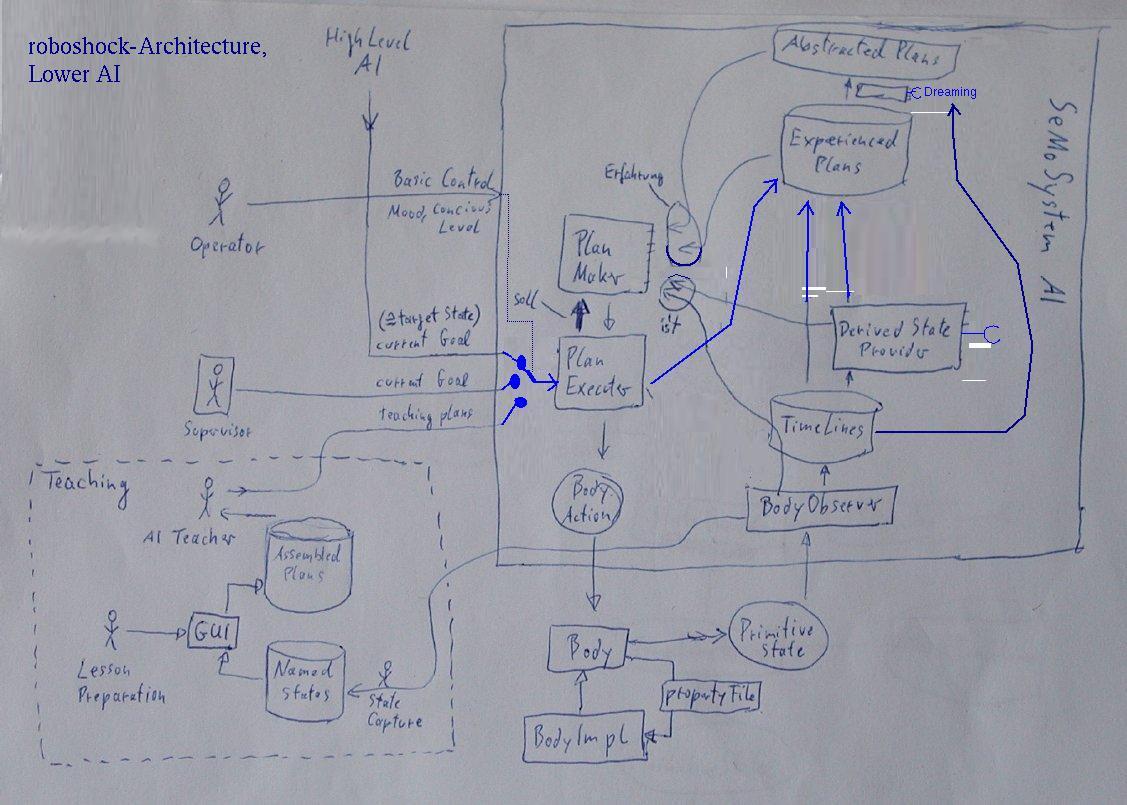 roboshock-Architecture,
Lower AI
High Level
AI
Abstracted Plans
Dreaming
Experienced
Plans
SeMoSystem AI
Erfahrung
Basic Control
Mood, Concious
Level
Operator
Plan
Maker
soll
ist
(≙target State)
current Goal
Derived State
Provider
Plan
Executer
current Goal
teaching plans
Supervisor
TimeLines
Teaching
AI Teacher
Body
Action
BodyObserver
Assembled
Plans
GUI
Lesson
Preparation
Named
States
State
Capture
Body
Primitive
State
propertyFile
BodyImpl